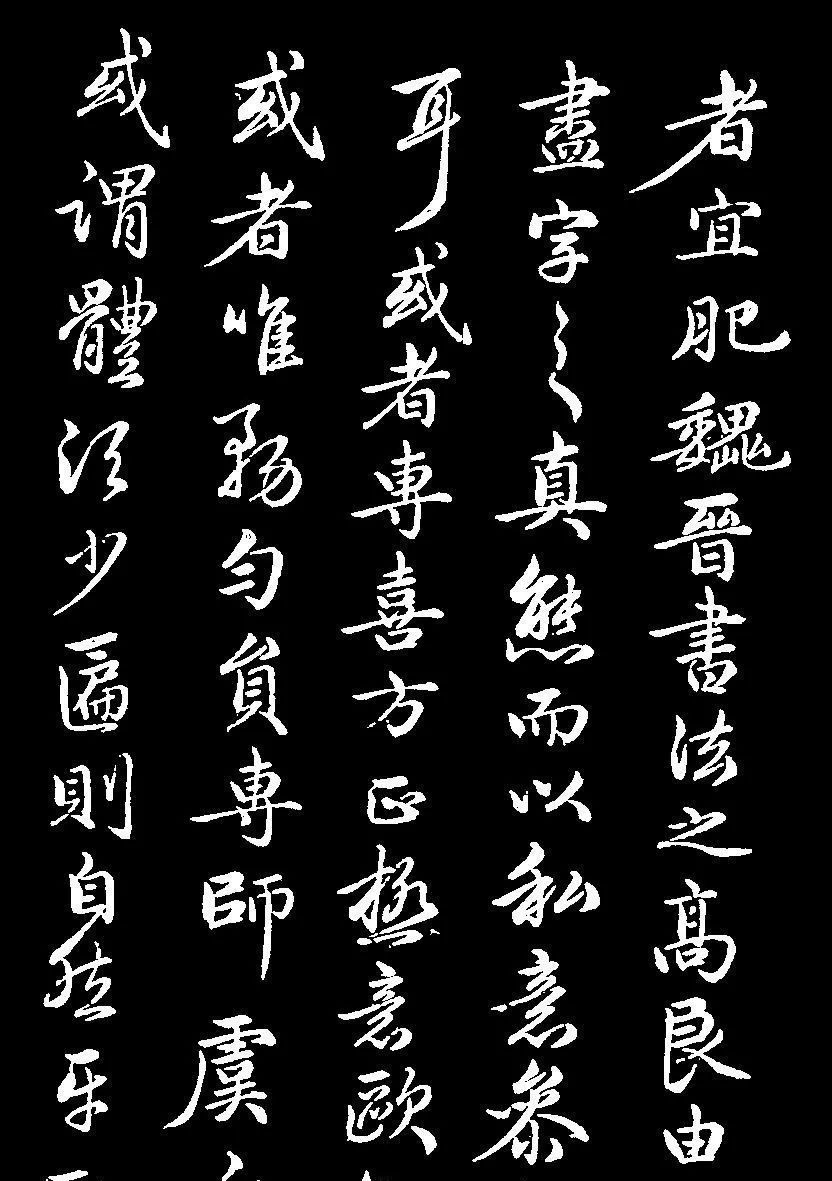 者宜肥魏晉書法之高良由
盡字之真態而以私意參
耳或者專喜方正極意歐
或者唯務勻員專師虞
或謂體須少匾則自然平